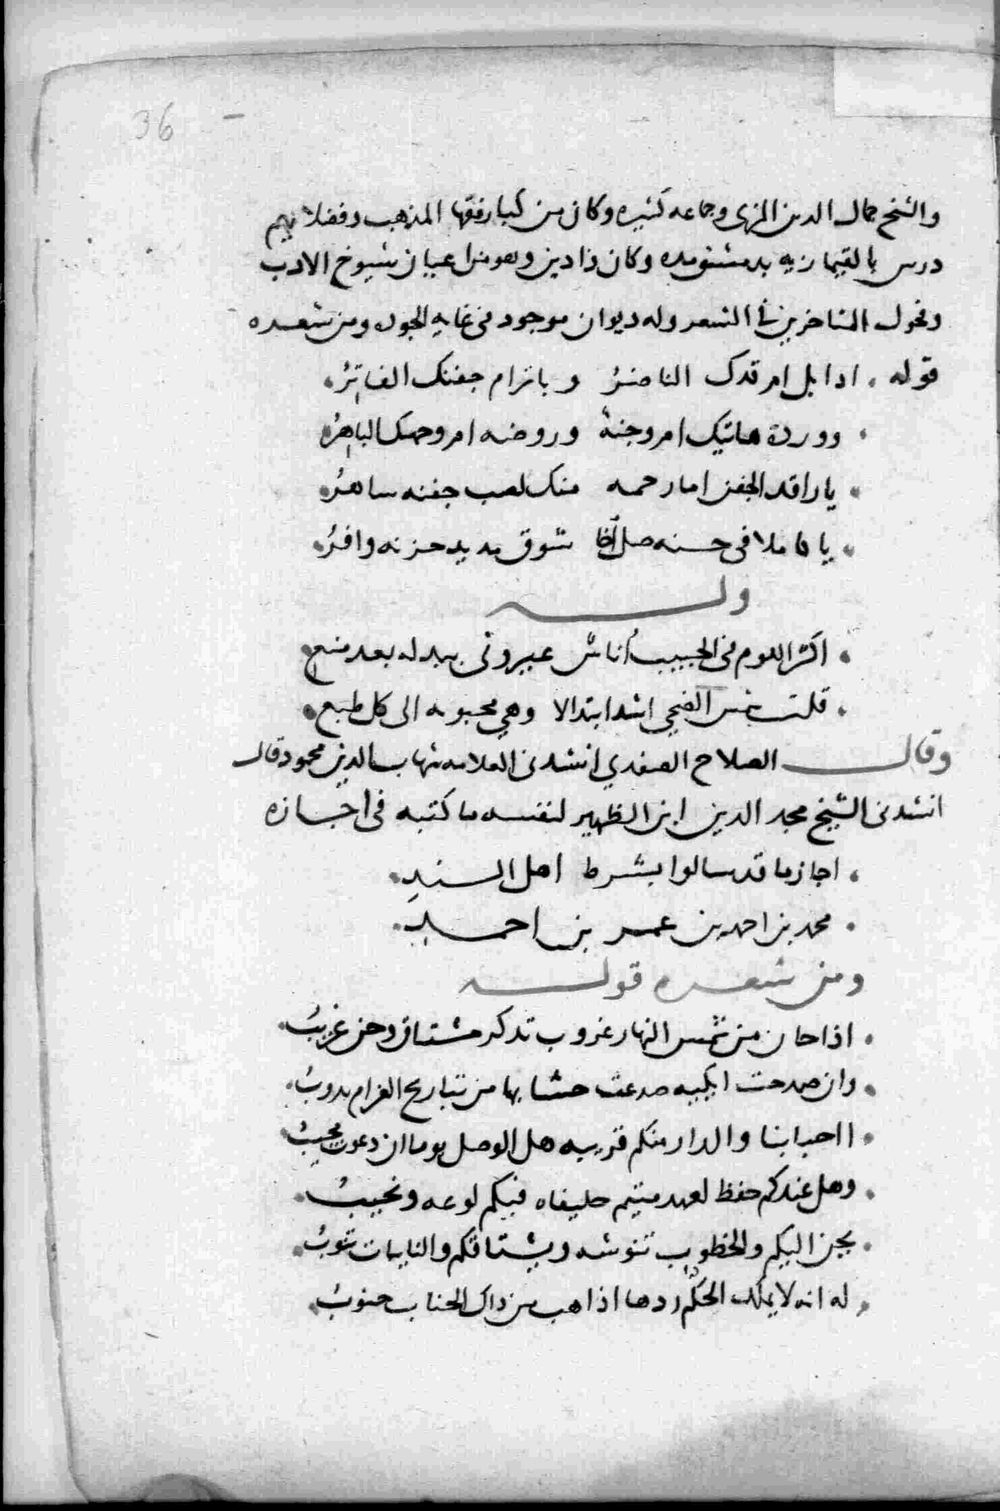 36
والشيخ جمال الدين المزي وجماعه كثيره وكان من كبار فقها المذهب وفضلايهم
درس بالقيمازيه بدمشق مده وكان ذا دين وهو من اعيان شيوخ الادب
وفحول المتاخرين في الشعر وله ديوان موجود في غايه الجوده ومن شعره
قوله . ادابل ام قدك الناضرُ وباترام جفنك الفاترُ .
. ووردة هاتيك ام وجنة وروضه ام وجهك الباهرُ
. يا راقد الجفن اما رحمه منك لصب جفنه ساهرُ .
. يا كاملا في حسنه صل اخا شوق مديد حزنه وافرُ .
وله
. اكثر اللوم في الحبيب اناسٌ عيروني ببدله بعد منع .
. قلت شمس الضحي اشد ابتدالا وهي محبوبه الى كل طبع .
وقال الصلاح الصفدي انشدني العلامه شهاب الدين محمود قال
انشدني الشيخ مجد الدين ابن الظهير لنفسه ما كتبه في اجازه
. اجاز ما قد سالوا بشرط اهل السندِ .
. محمد بن احمد بن عمر بن احمد .
ومن شعره قوله
. اذا حان من شمس النهار غروب تدكر مشتاق وحن غريبُ .
. وان صدحت ايكيه صدعت حشا بها من تباريح الغرام ندوبُ .
. ااحبابنا والدار منكم قريبه هل الوصل يوما ان دعوت يجيبُ
. وهل عندكم حفظ لعهد متيم حليفاه فيكم لوعه ونحيبُ .
. يحن اليكم والخطوب تنوشه ويشتاقكم والنايبات تنوبُ .
. له انه لا يملك الحكم ردها اذا هب من ذاك الجناب جنوبُ .